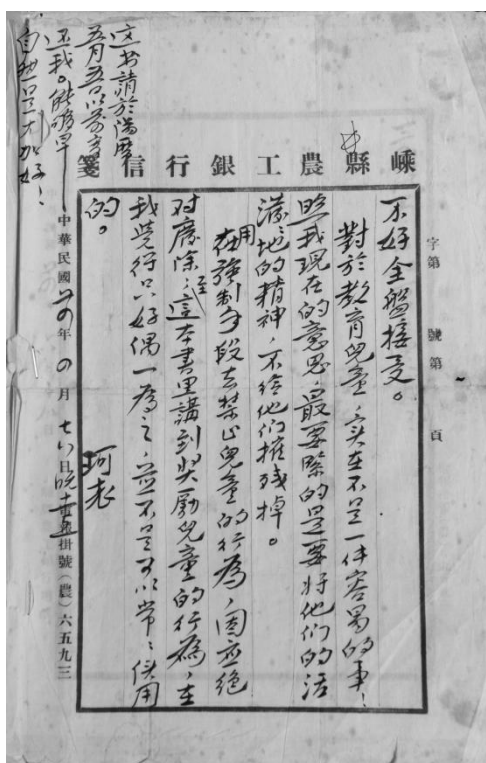 嵊縣農工銀行信箋
字第 號第 頁
不好全盤接受。
對於教育兒童,实在不是一件容易的事!
照我現在的意思,最要緊的是要将他們的活
潑潑地的精神,不給他們摧殘掉。
用強制手段去禁止兒童的行為,固应絕
对廢除;這本書里講到奖勵兒童的行為,在
我覺得只好偶一為之,並不是可以常常使用
的。
中華民國 年 月 日
掛號(農)六五九三
这书請於陽曆
五月五日以前寄
还我。能够早
自然是更加好!